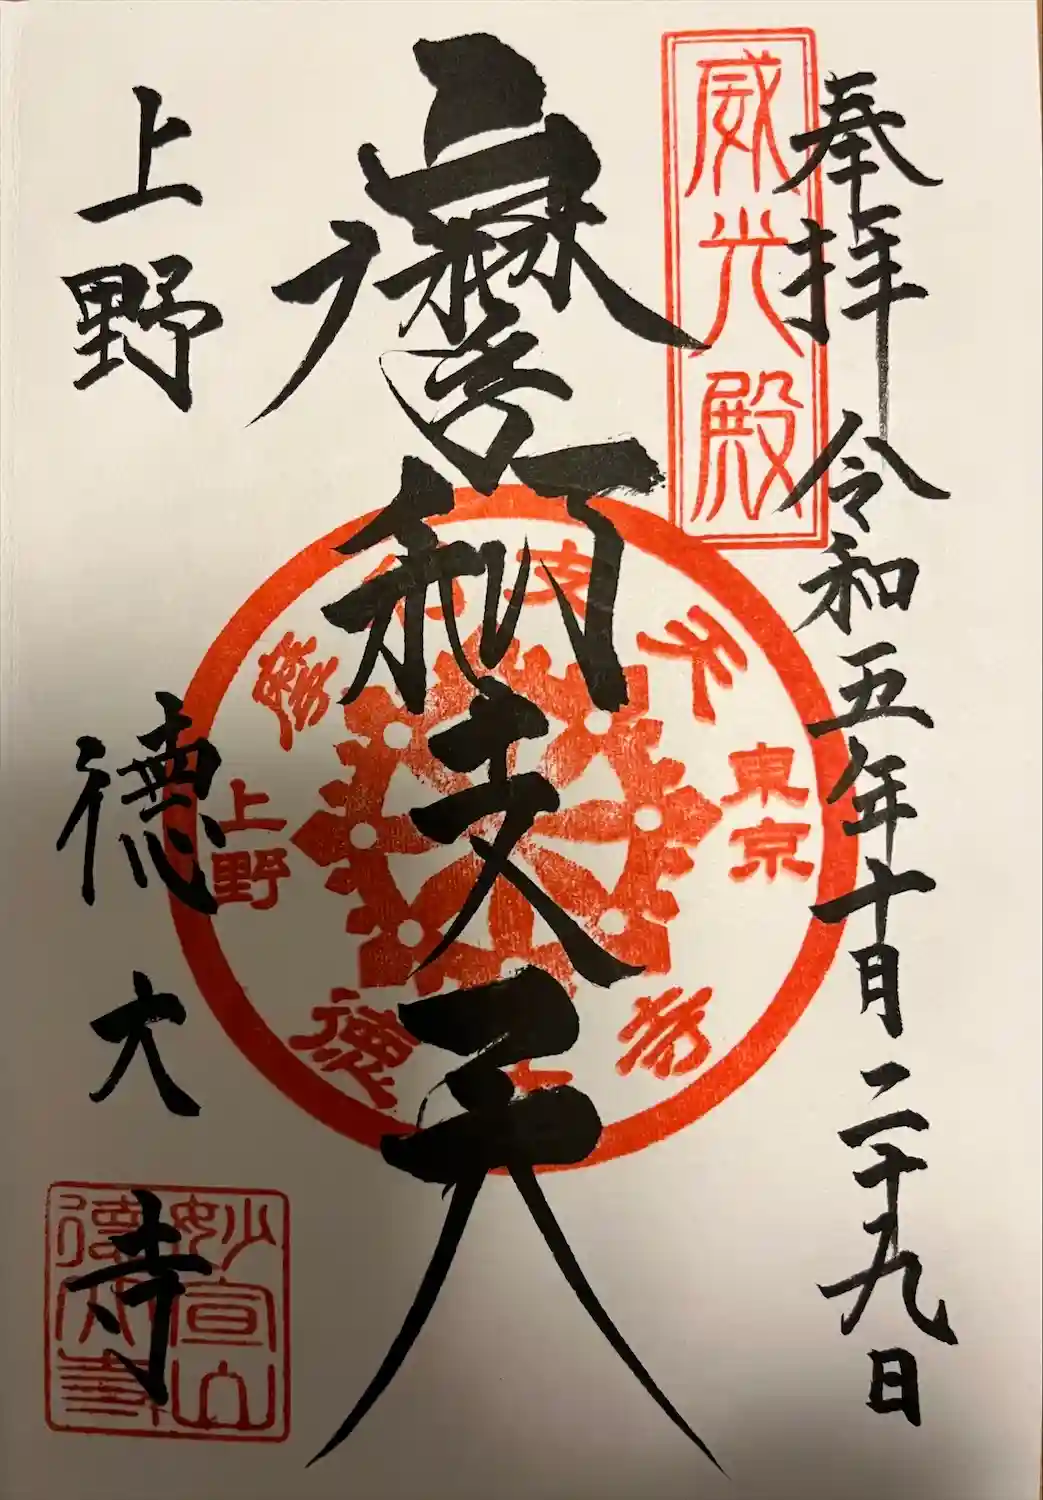 奉拝 令和五年十月二十九日
威光殿
摩利支天
摩利支天
東京
上野
徳大寺
上野 徳大寺
妙宣山
徳大寺